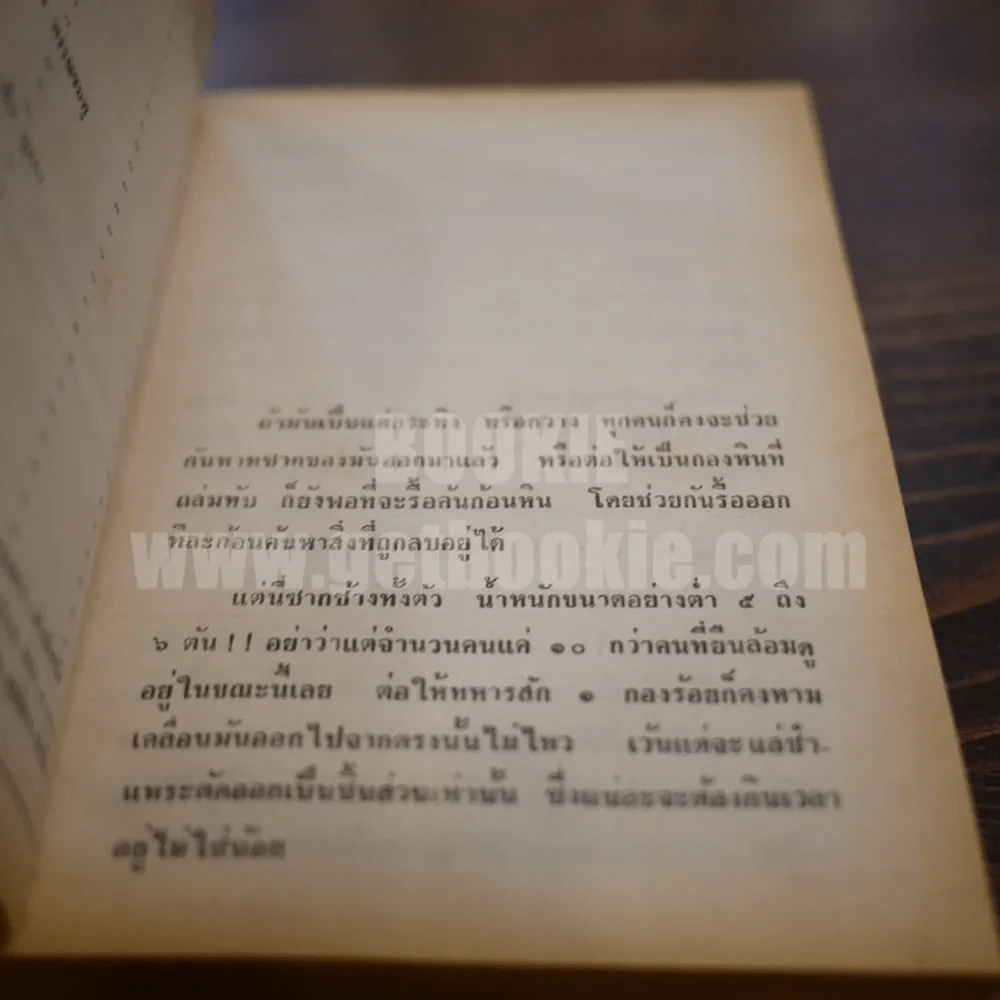 ถ้ามันเป็นแค่กระทิง หรือกวาง ทุกคนก็คงจะช่วย
กันหามซากของมันออกมาแล้ว หรือต่อให้เป็นกองหินที่
ถล่มทับ ก็ยังพอที่จะรื้อค้นก้อนหิน โดยช่วยกันรื้อออก
ทีละก้อนค้นหาสิ่งที่ถูกลบอยู่ได้
แต่นี่ซากช้างทั้งตัว น้ำหนักขนาดอย่างต่ำ ๕ ถึง
๖ ตัน!! อย่าว่าแต่จำนวนคนแค่ ๑๐ กว่าคนที่ยืนล้อมดู
อยู่ในขณะนี้เลย ต่อให้ทหารสัก ๑ กองร้อยก็คงหาม
เคลื่อนมันออกไปจากตรงนั้นไม่ไหว เว้นแต่จะแล่ชำ-
แหระตัดออกเป็นชิ้นส่วนเท่านั้น ซึ่งแน่ละจะต้องกินเวลา
อยู่ไม่ใช่น้อย
BOOKIE
www.getbookie.com